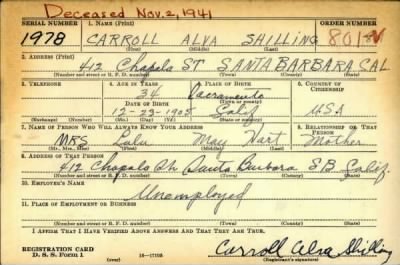 Deceased Nov. 2, 1941
SERIAL NUMBER 1. NAME (Print) ORDER NUMBER
1978 CARROLL ALVA SHILLING 801
(First) (Middle) (Last)
2. ADDRESS (Print)
412 Chapala ST SANTA BARBARA CAL
(Number and street or R. F. D. number) (Town) (County) (State)
3. TELEPHONE 4. AGE IN YEARS 5. PLACE OF BIRTH 6. COUNTRY OF CITIZENSHIP
Sacramento
DATE OF BIRTH (Town or county)
12-23-1905 Calif USA
(Exchange) (Number) (Mo.) (Day) (Yr.) (State or country)
7. NAME OF PERSON WHO WILL ALWAYS KNOW YOUR ADDRESS 8. RELATIONSHIP OF THAT PERSON
MRS Lalu May Hart Mother
(Mr., Mrs., Miss) (First) (Middle) (Last)
9. ADDRESS OF THAT PERSON
412 Chapala St Santa Barbara S B Calif.
(Number and street or R. F. D. number) (Town) (County) (State)
10. EMPLOYER'S NAME
Unemployed
11. PLACE OF EMPLOYMENT OR BUSINESS
(Number and street or R. F. D. number) (Town) (County) (State)
I AFFIRM THAT I HAVE VERIFIED ABOVE ANSWERS AND THAT THEY ARE TRUE.
REGISTRATION CARD
D. S. S. Form 1 (over) Carroll Alva Shilling
(Registrant's signature)